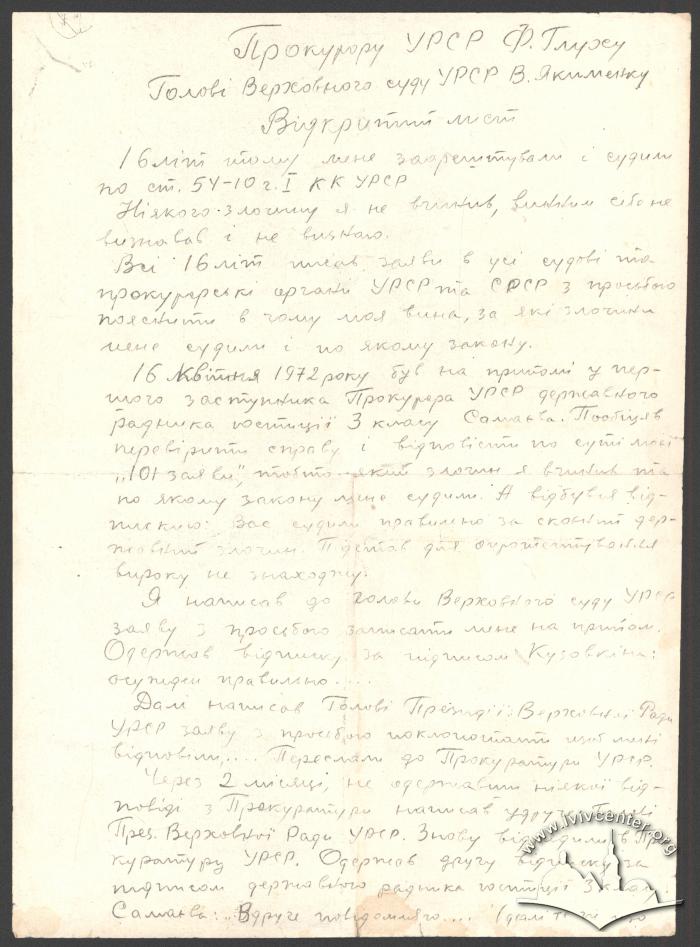 Прокурору УРСР Ф. Глуху
Голові Верховного суду УРСР В. Якименку
Відкритий лист
16 літ тому мене заарештували і судили
по ст. 54-10 ч. I КК УРСР
Ніякого злочину я не вчинив, винним себе не
визнавав і не визнаю.
Всі 16 літ писав заяви в усі судові та
прокурорські органи УРСР та СРСР з просьбою
пояснити в чому моя вина, за які злочини
мене судили і по якому закону.
16 квітня 1972 року був на прийомі у пер-
шого заступника Прокурора УРСР державного
радника юстиції 3 класу Самаєва. Пообіцяв
перевірити справу і відповісти по суті моєї
„101 заяви", тобто який злочин я вчинив та
по якому закону мене судили. А відбувся від-
пискою: Вас судили правильно за скоєний дер-
жавний злочин. Підстав для опротестування
вироку не знаходжу.
Я написав до Голови Верховного суду УРСР
заяву з просьбою записати мене на прийом.
Одержав відписку за підписом Кузовкіна:
осуждён правильно....
Далі написав Голові Президії Верховної Ради
УРСР заяву з просьбою поклопотати щоб мені
відповіли.... Переслали до Прокуратури УРСР.
Через 2 місяці, не одержавши ніякої від-
повіді з Прокуратури написав удруге Голові
През. Верховної Ради УРСР. Знову в Про
куратуру УРСР. Одержав другу відписку за
підписом державного радника юстиції 3 класу
Самаєва: „Вдруге повідомляю.... (далі те ж що
www.lvivcenter.org